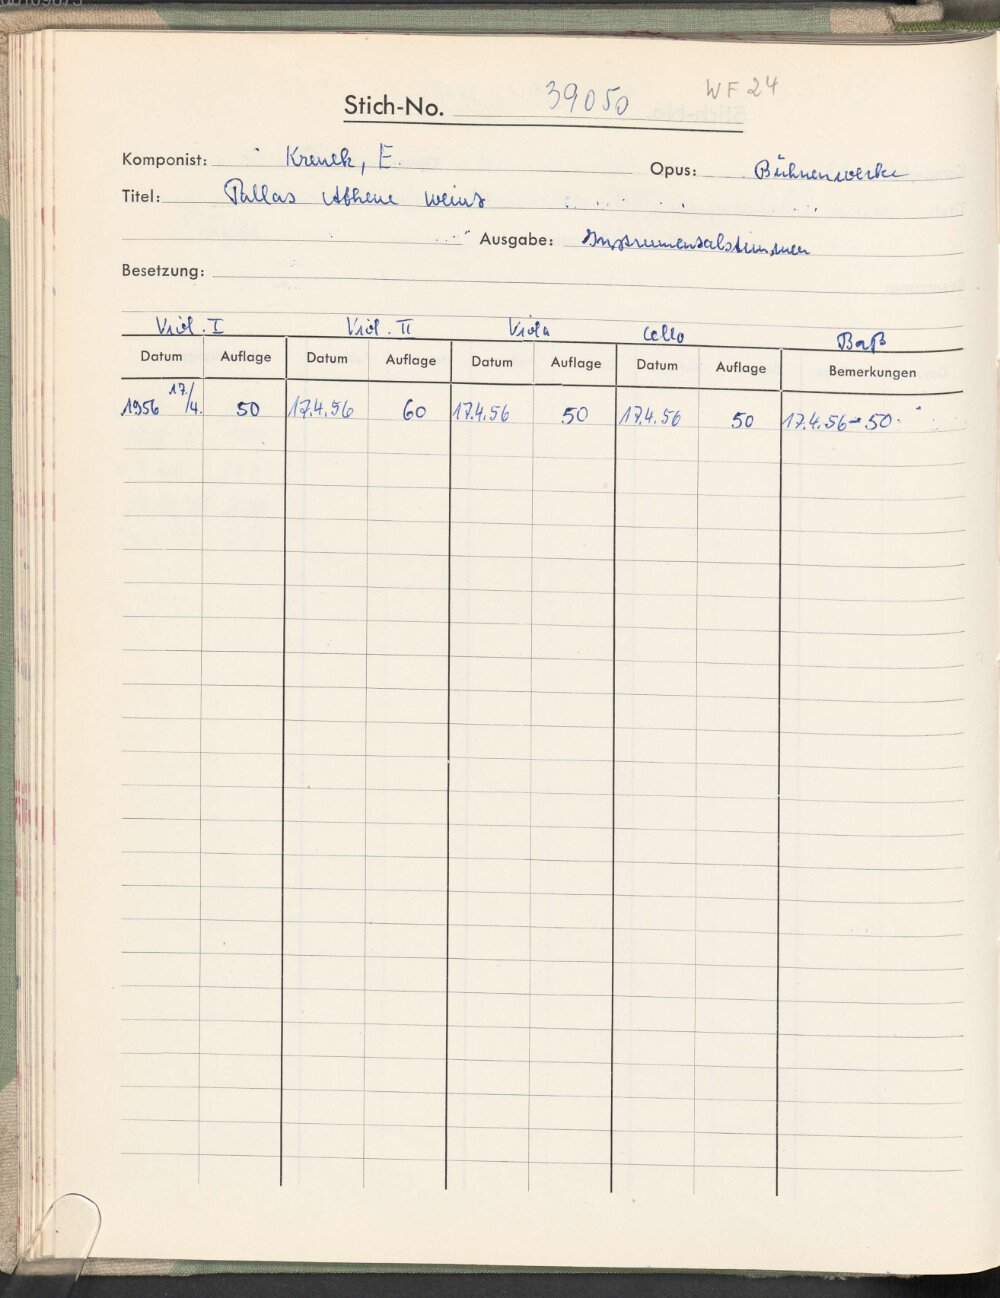 Stich-No. 39050 WF 24
Komponist: Krenek, E. Opus: Bühnenwerke
Titel: Pallas Athene weint
Ausgabe: Instrumentalstimmen
Besetzung:
Viol. I Viol. II Viola Cello Baß
Datum Auflage Datum Auflage Datum Auflage Datum Auflage Bemerkungen
1956 17./4. 50 17.4.56 60 17.4.56 50 17.4.56 50 17.4.56 - 50